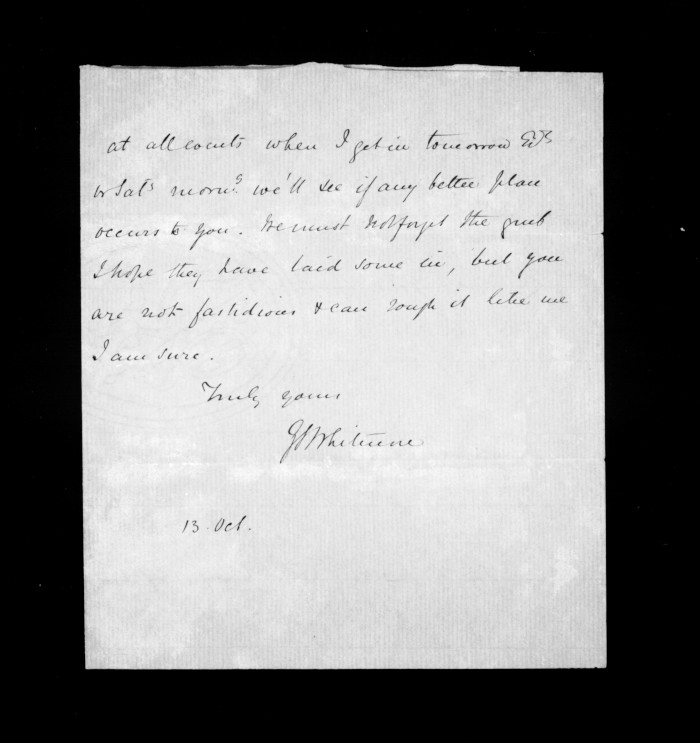 at all events when I get in tomorrow Evg
or Satʸ mornᵍ we'll see if any better plan
occurs to you. We must not forget the grub
I hope they have laid some in, but you
are not fastidious & can rough it like me
I am sure.
Truly yours
GSWhitmore
13. Oct.